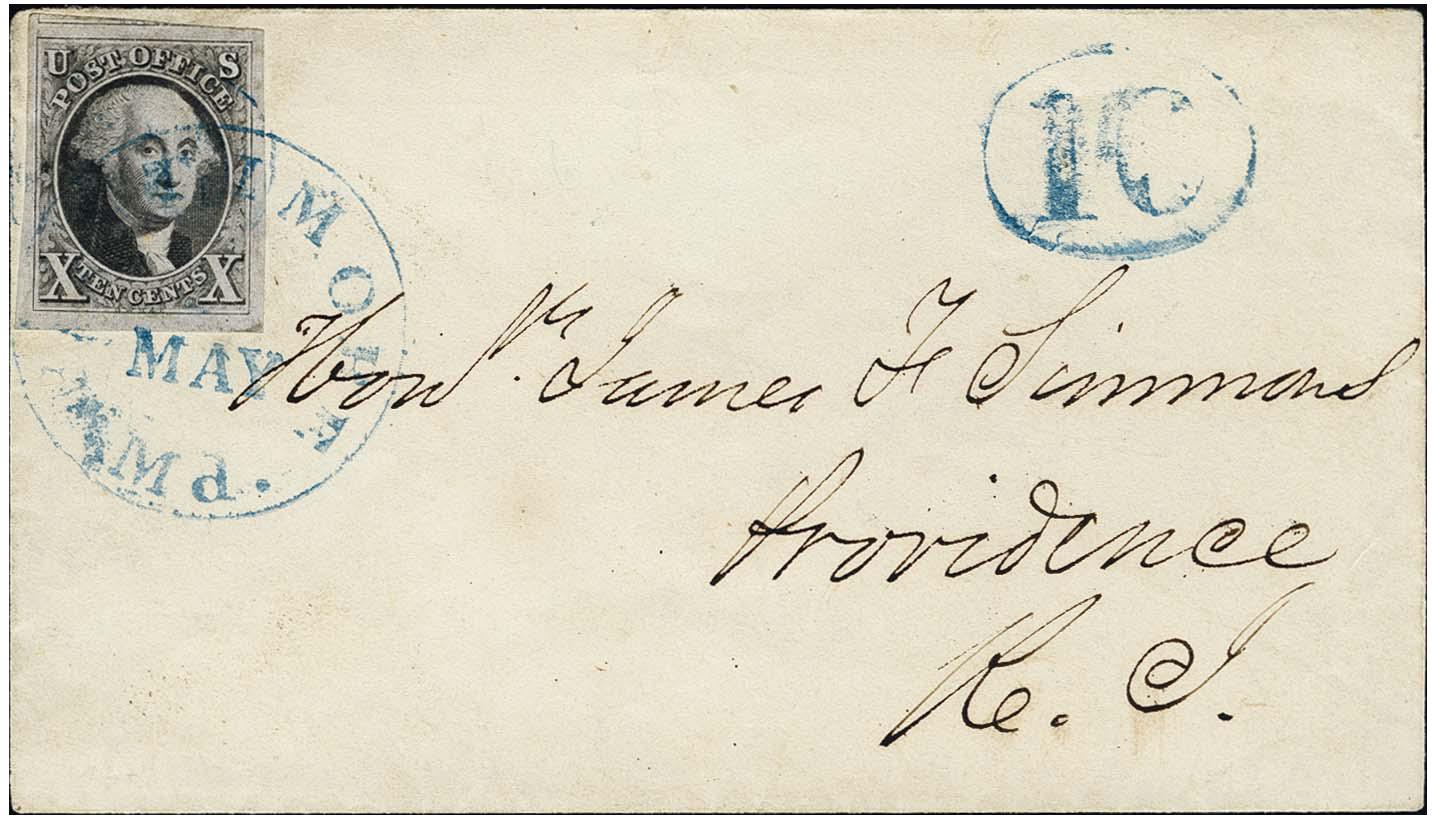 U S
POST OFFICE
X TEN CENTS X
10
TIMORE
MAY
Hon. James F Simmons
Providence
R. I.